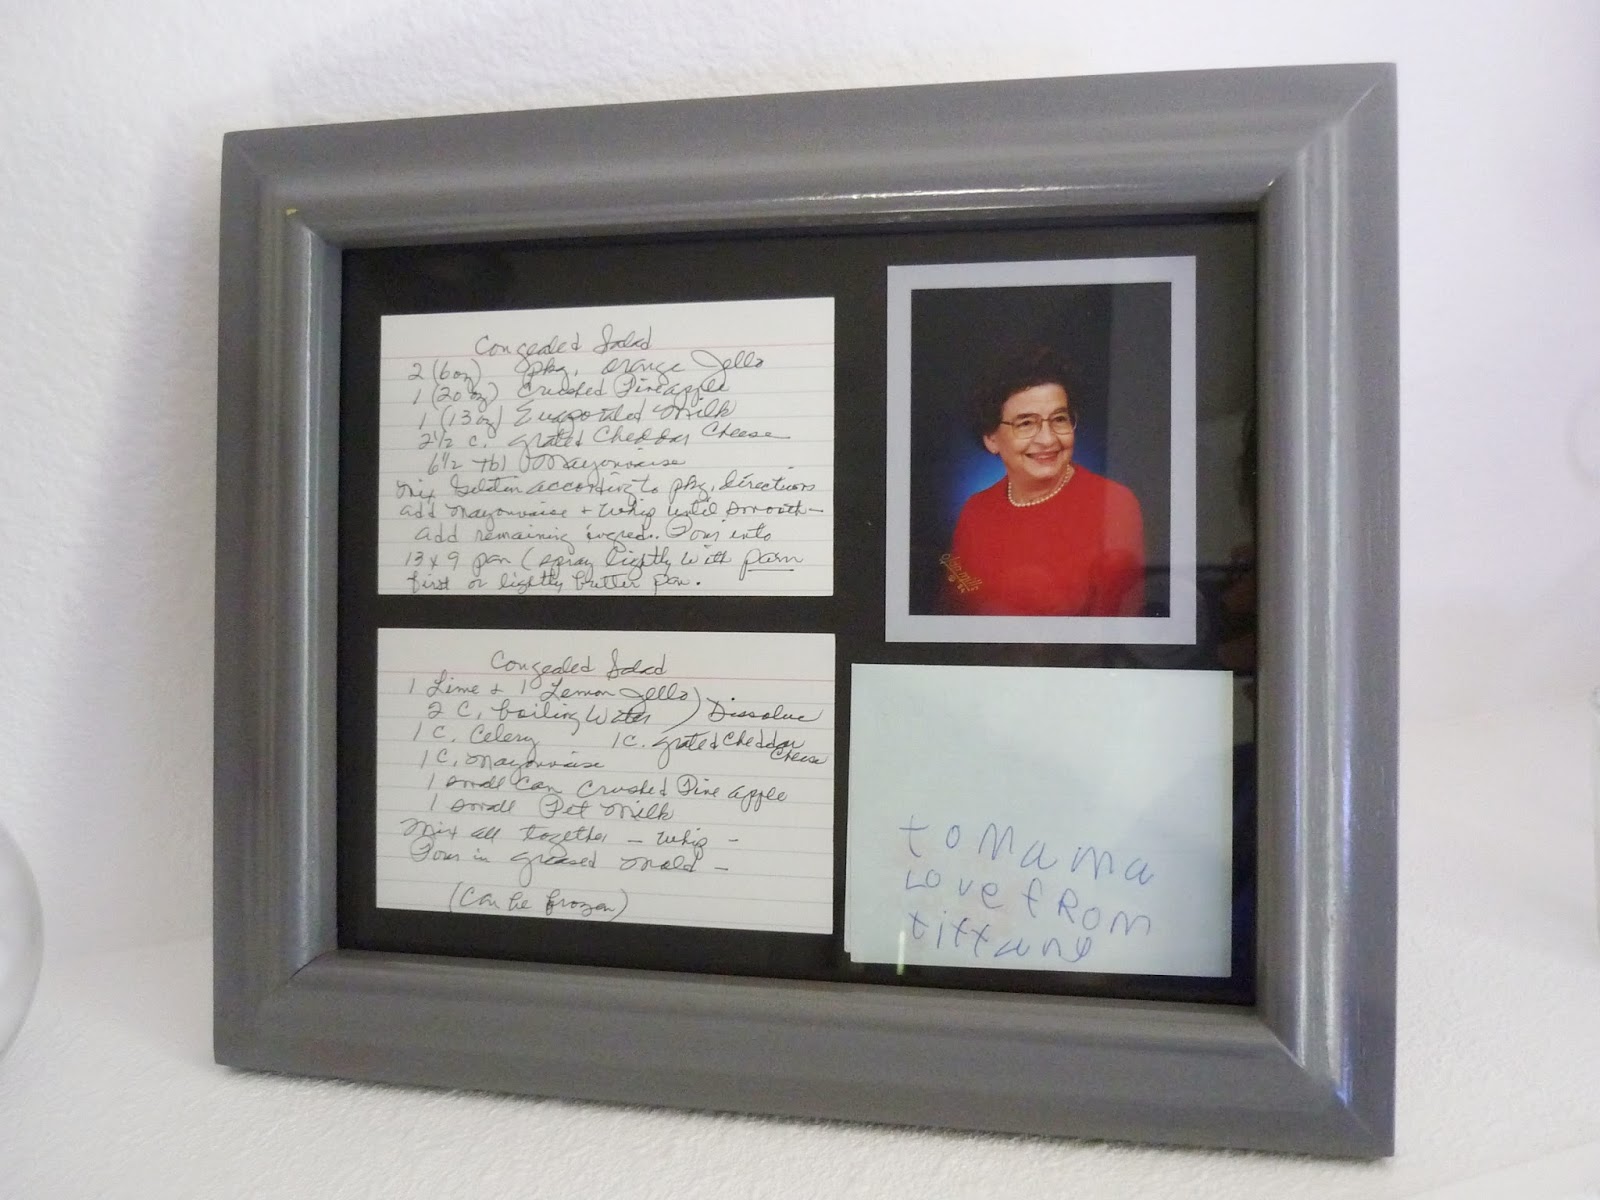 Congealed Salad
2 (6oz) pkg. orange Jello
1 (20 oz) Crushed Pineapple
1 (13 oz) Evaporated Milk
2½ c. grated Cheddar Cheese
6½ tbl Mayonnaise
Mix Gelatin according to pkg. directions
add Mayonnaise + Whip until smooth—
add remaining ingred. Pour into
13 x 9 pan (spray lightly with pam
first or lightly butter pan.
Congealed Salad
1 Lime + 1 Lemon Jello) Dissolve
2 C. boiling Water )
1 C. Celery 1 C. grated Cheddar Cheese
1 C. Mayonnaise
1 small can Crushed Pine apple
1 small Pet Milk
Mix all together — Whip —
Pour in greased Mold —
(Can be frozen)
to MaMa
Love fROM
tiffany